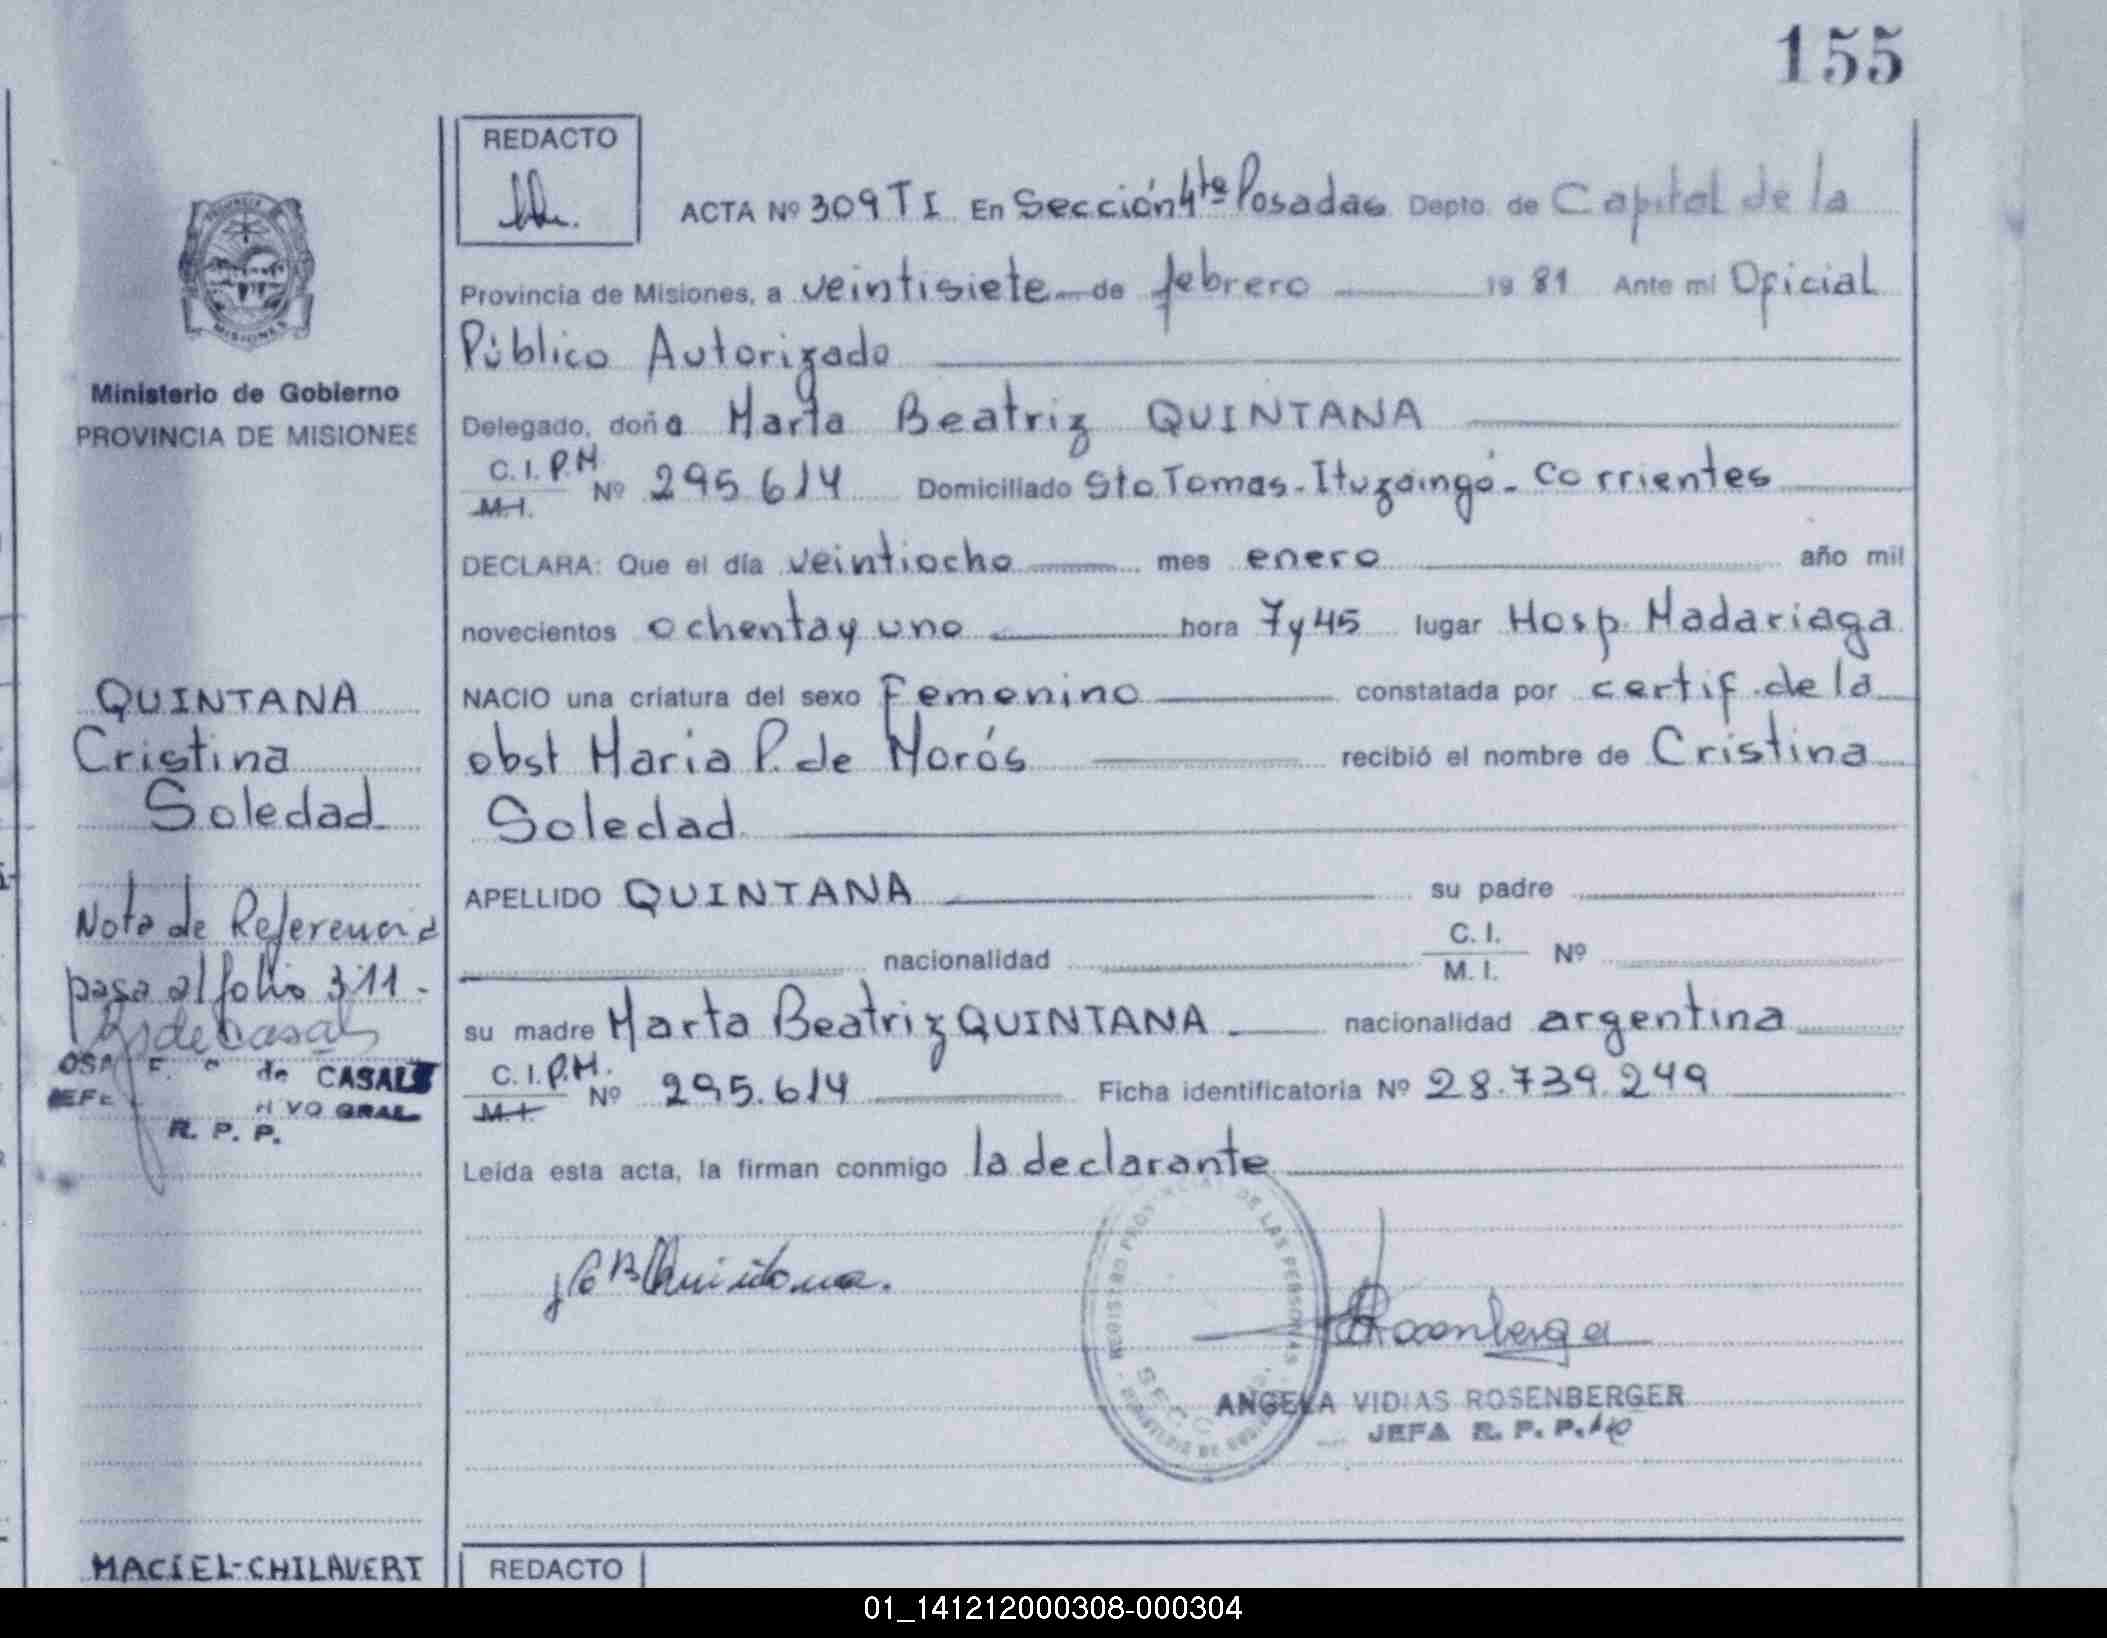 155
REDACTO
ACTA Nº 309 T I En Sección 4ta Posadas Depto. de Capital de la
Provincia de Misiones, a veintisiete de febrero 19 81 Ante mi Oficial
Público Autorizado
Delegado, doña Marta Beatriz QUINTANA
C. I. P.M.
M. I.
Nº 295.614 Domiciliado Sto Tomas - Ituzaingó - Corrientes
DECLARA: Que el día veintiocho mes enero año mil
novecientos ochenta y uno hora 7 y 45 lugar Hosp. Madariaga
NACIO una criatura del sexo Femenino constatada por certif. de la
obst Maria P. de Morós recibió el nombre de Cristina
Soledad
APELLIDO QUINTANA su padre
nacionalidad C. I.
M. I.
Nº
su madre Marta Beatriz QUINTANA nacionalidad argentina
C. I. P.M.
M. I.
Nº 295.614 Ficha identificatoria Nº 28.739.249
Leída esta acta, la firman conmigo la declarante
REGISTRO PROVINCIAL DE LAS PERSONAS
SECC
ANGELA VIDIAS ROSENBERGER
JEFA R. P. P.
PROVINCIA
MISIONES
Ministerio de Gobierno
PROVINCIA DE MISIONES
QUINTANA
Cristina
Soledad
Nota de Referencia
pasa al folio 311.-
de CASALS
R. P. P.
MACIEL-CHILAVERT
REDACTO
01_141212000308-000304